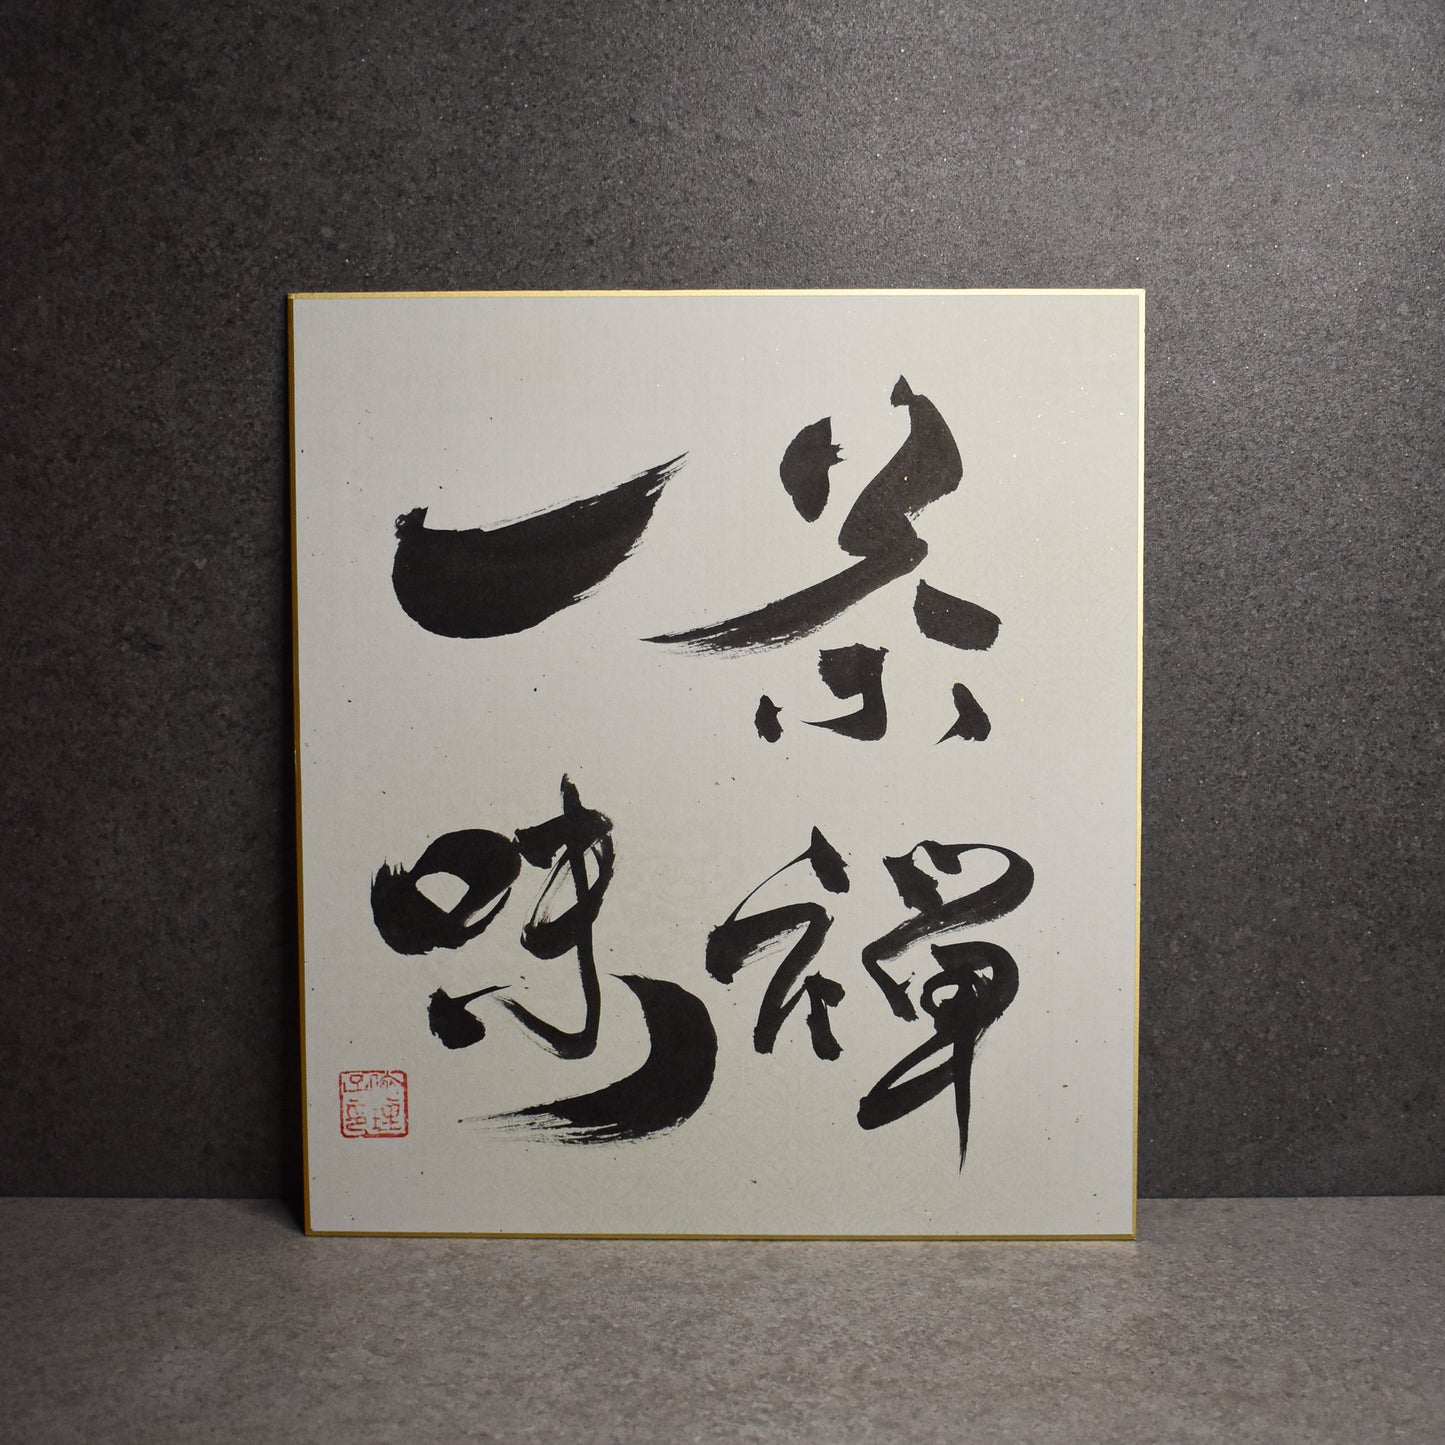 茶禅
一味